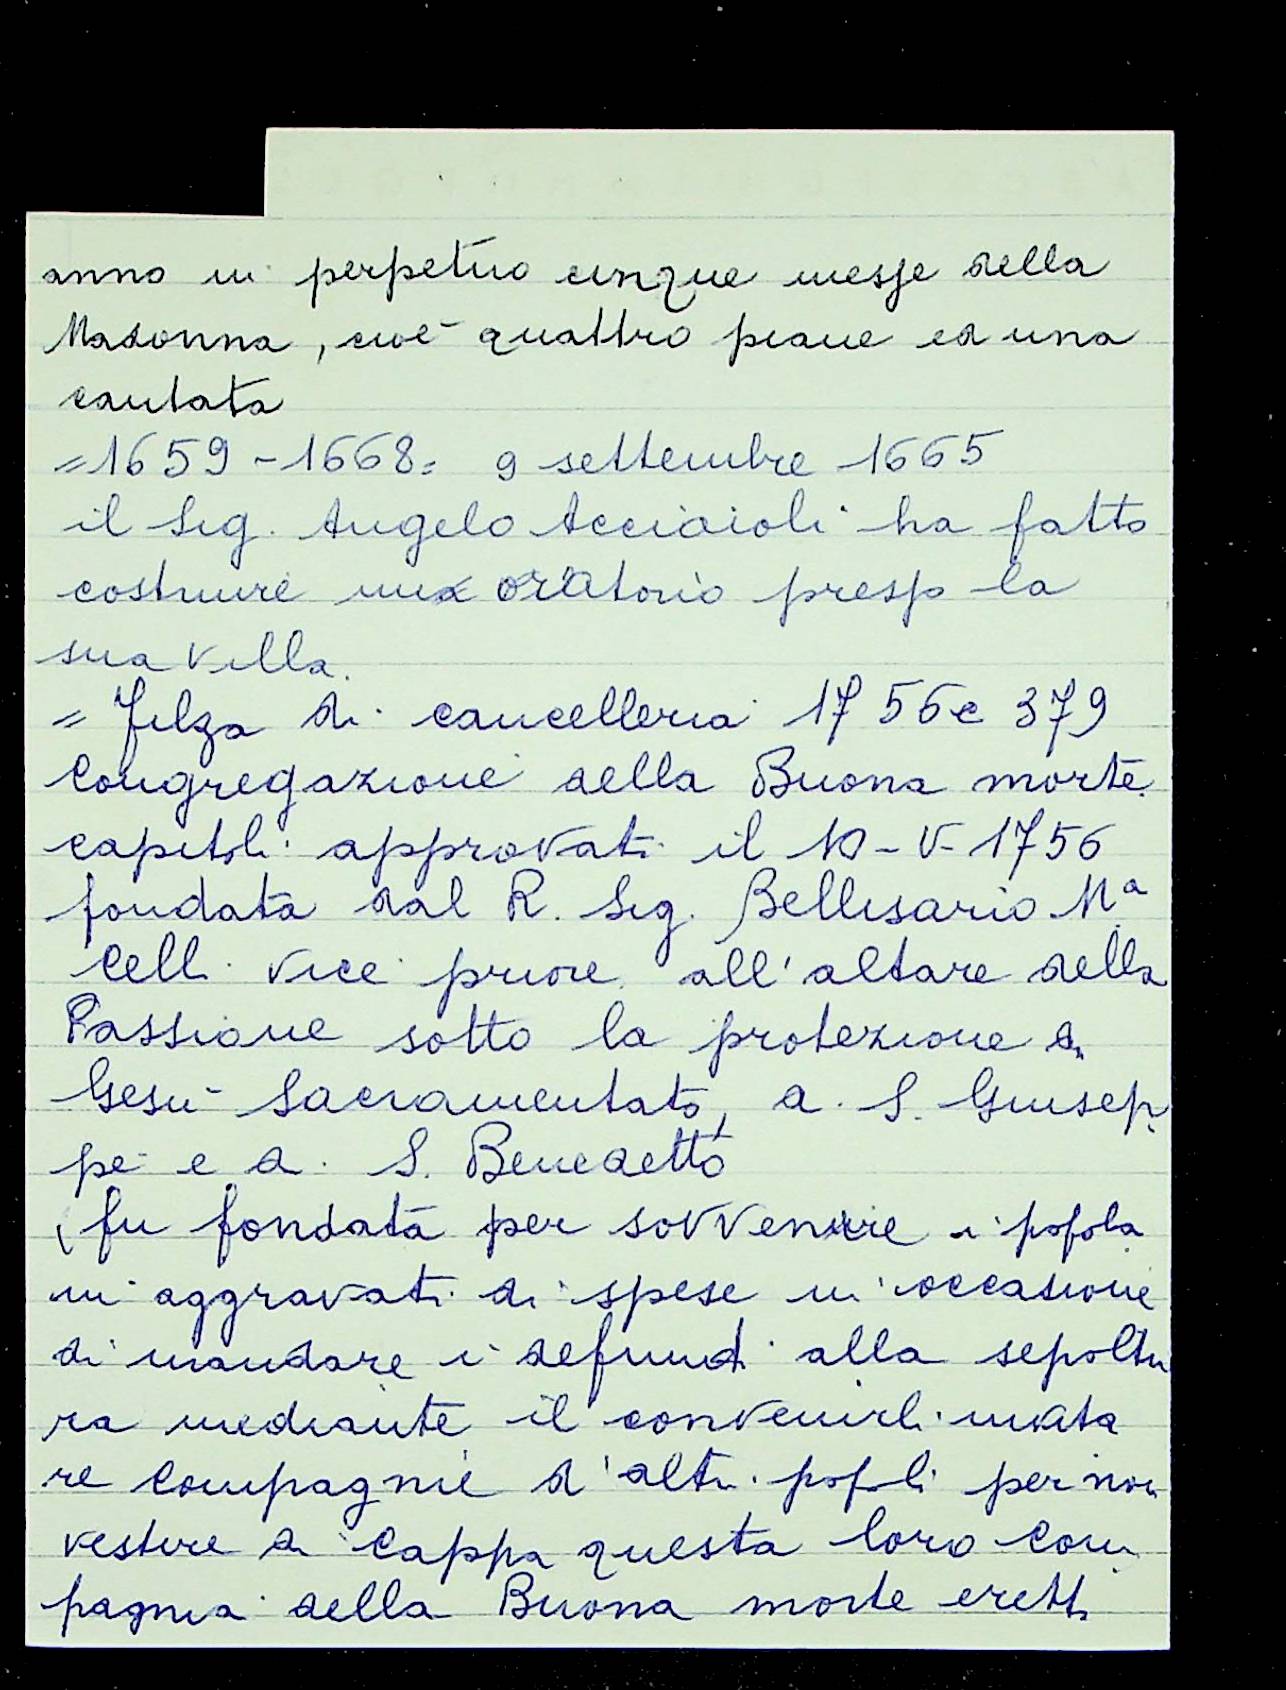 anno in perpetuo cinque messe della
Madonna, cioè quattro piane ed una
cantata
=1659-1668= 9 settembre 1665
il Sig. Angelo Acciaioli ha fatto
costruire un oratorio presso la
sua villa.
= Filza di cancelleria 1756 c 379
Congregazione della Buona morte
capitoli approvati il 10-V-1756
fondata dal R. Sig. Bellisario Mª
Celli vice priore all'altare della
Passione sotto la protezione di
Gesù Sacramentato, a S. Giusep
pe e a S. Benedetto
(fu fondata per sovvenire i popola
ni aggravati di spese in occasione
di mandare i defunti alla sepoltu
ra mediante il convenirli invita
re compagnie d'altri popoli per non
vestire di cappa questa loro com
pagnia della Buona morte eretti